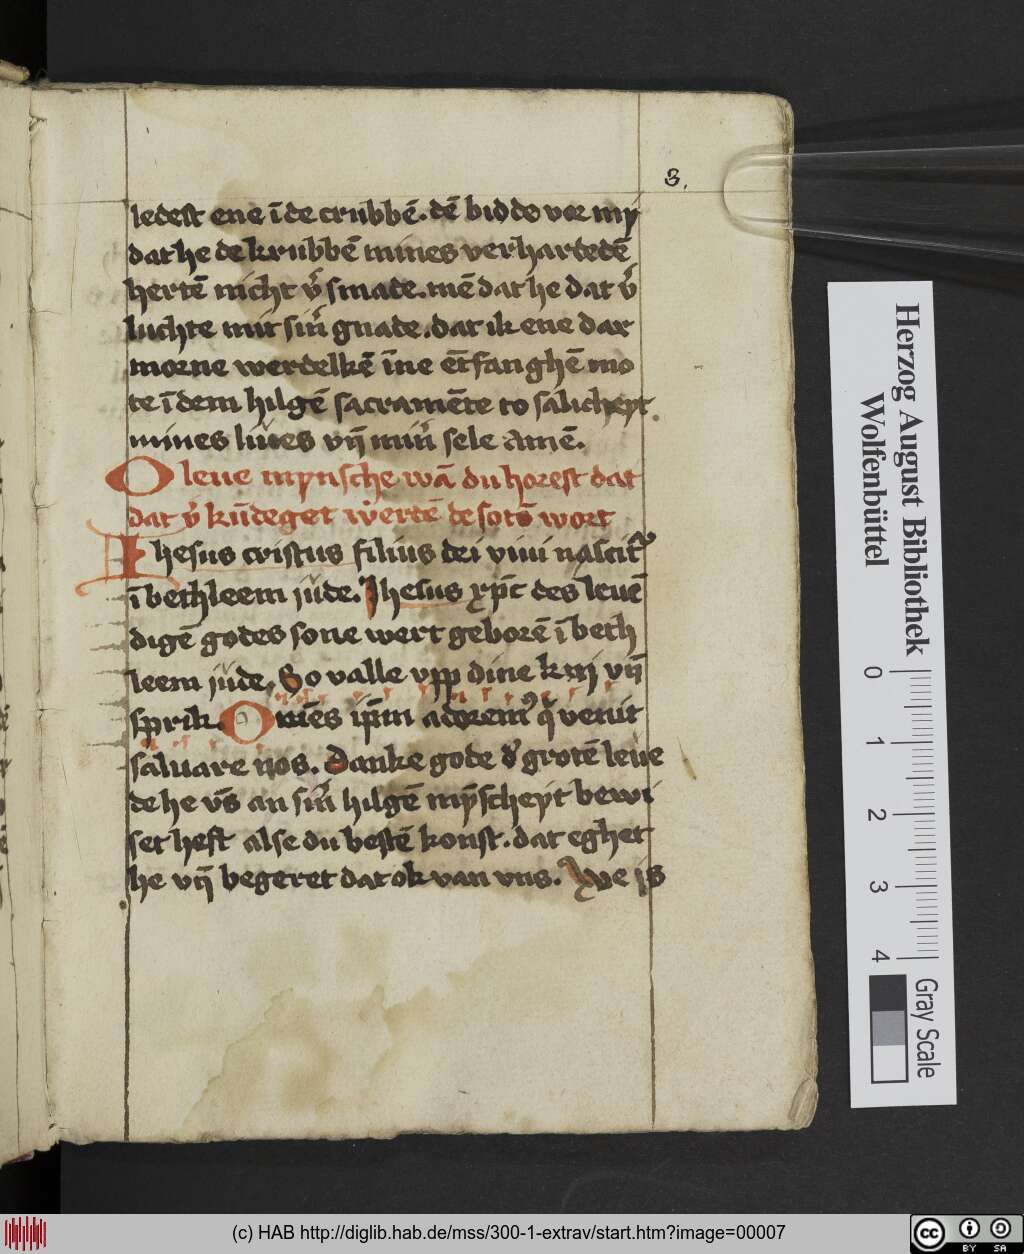 3.
ledest ene ī de crubbē. dē bidde vor my
dat he de krubbē mines verhartedē
hertē nicht v̄ smade. mē dat he dat v̄
luchte mit sin̄ gnade. dat ik ene dar
morne werdelkē īne ētfanghē mo
te ī dem hilgē sacramēte to salicheyt
mines liues vn̄ min̄ sele Amē.
O leue mynsche wā du horest dat
dat v̄ kūdeget werte de sotē wort
Ihesus cristus filius dei viui nascit᷑
ī bethleem jude. Jhesus xp̄c des leuē
digē godes sone wert geborē ī beth
leem jude. So valle vpp dine kny vn̄
sprik. Omēs ip̄m adoremꝰ q̄ venit
saluare nos. Danke gode d᷑ grotē leue
de he vs̄ an sin̄ hilgē myscheyt bewi
set heft alse du bestē konst. dat eghet
he vn̄ begeret dat ok van vns. Aue is
Herzog August Bibliothek
Wolfenbüttel
0 1 2 3 4
Gray Scale
(c) HAB http://diglib.hab.de/mss/300-1-extrav/start.htm?image=00007
cc BY SA